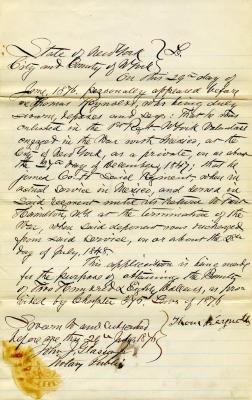 State of New York } SS.
City and County of N York }
On this 29th day of
June, 1876, personally appeared before
me Thomas Reynolds, who being duly
sworn, deposes and says: That he was
enlisted in the 1st Regt N York Volunteers
engaged in the War with Mexico, at the
City of New York, as a private, on or about
the day of December, 1847; that he
joined Co. said Regiment, when in
actual service in Mexico, and served in
said regiment until its return to Fort
Hamilton, N.Y. at the termination of the
War, when said deponent was discharged
from said service, on or about the
of July, 1848.
This application is being made
for the purpose of obtaining the Bounty
of Two Hundred & Eighty Dollars, as prov
ided by Chapter Laws of 1876
Sworn to and subscribed } Thomas Reynolds
before me this 29th 1876 }
John J.
Notary Public